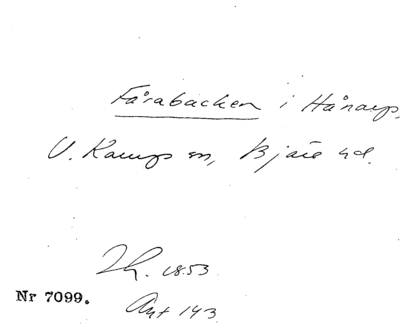 Fårabacken i Hånarps,
V. Karups sn, Bjäre hd.
Lh. 1853
Nr 7099.
Akt 143